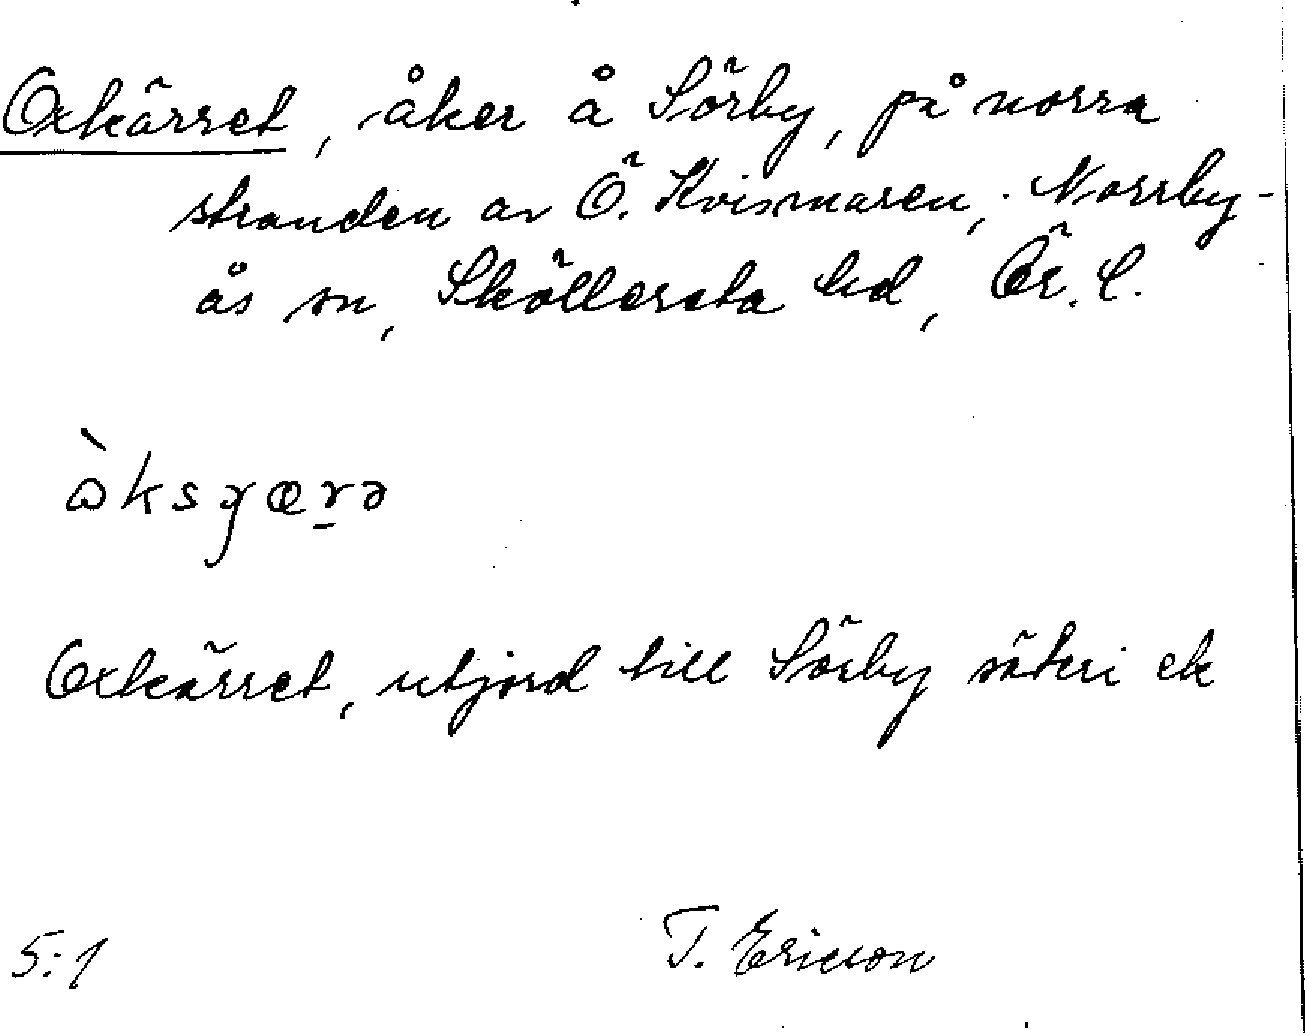 Oxkärret, åker å Sörby, på norra
stranden av Ö. Kvismaren, Norrby-
ås sn, Sköllersta hd, Ör. l.
Oxkärret, utjord till Sörby säteri ek
5:1
T. Ericson